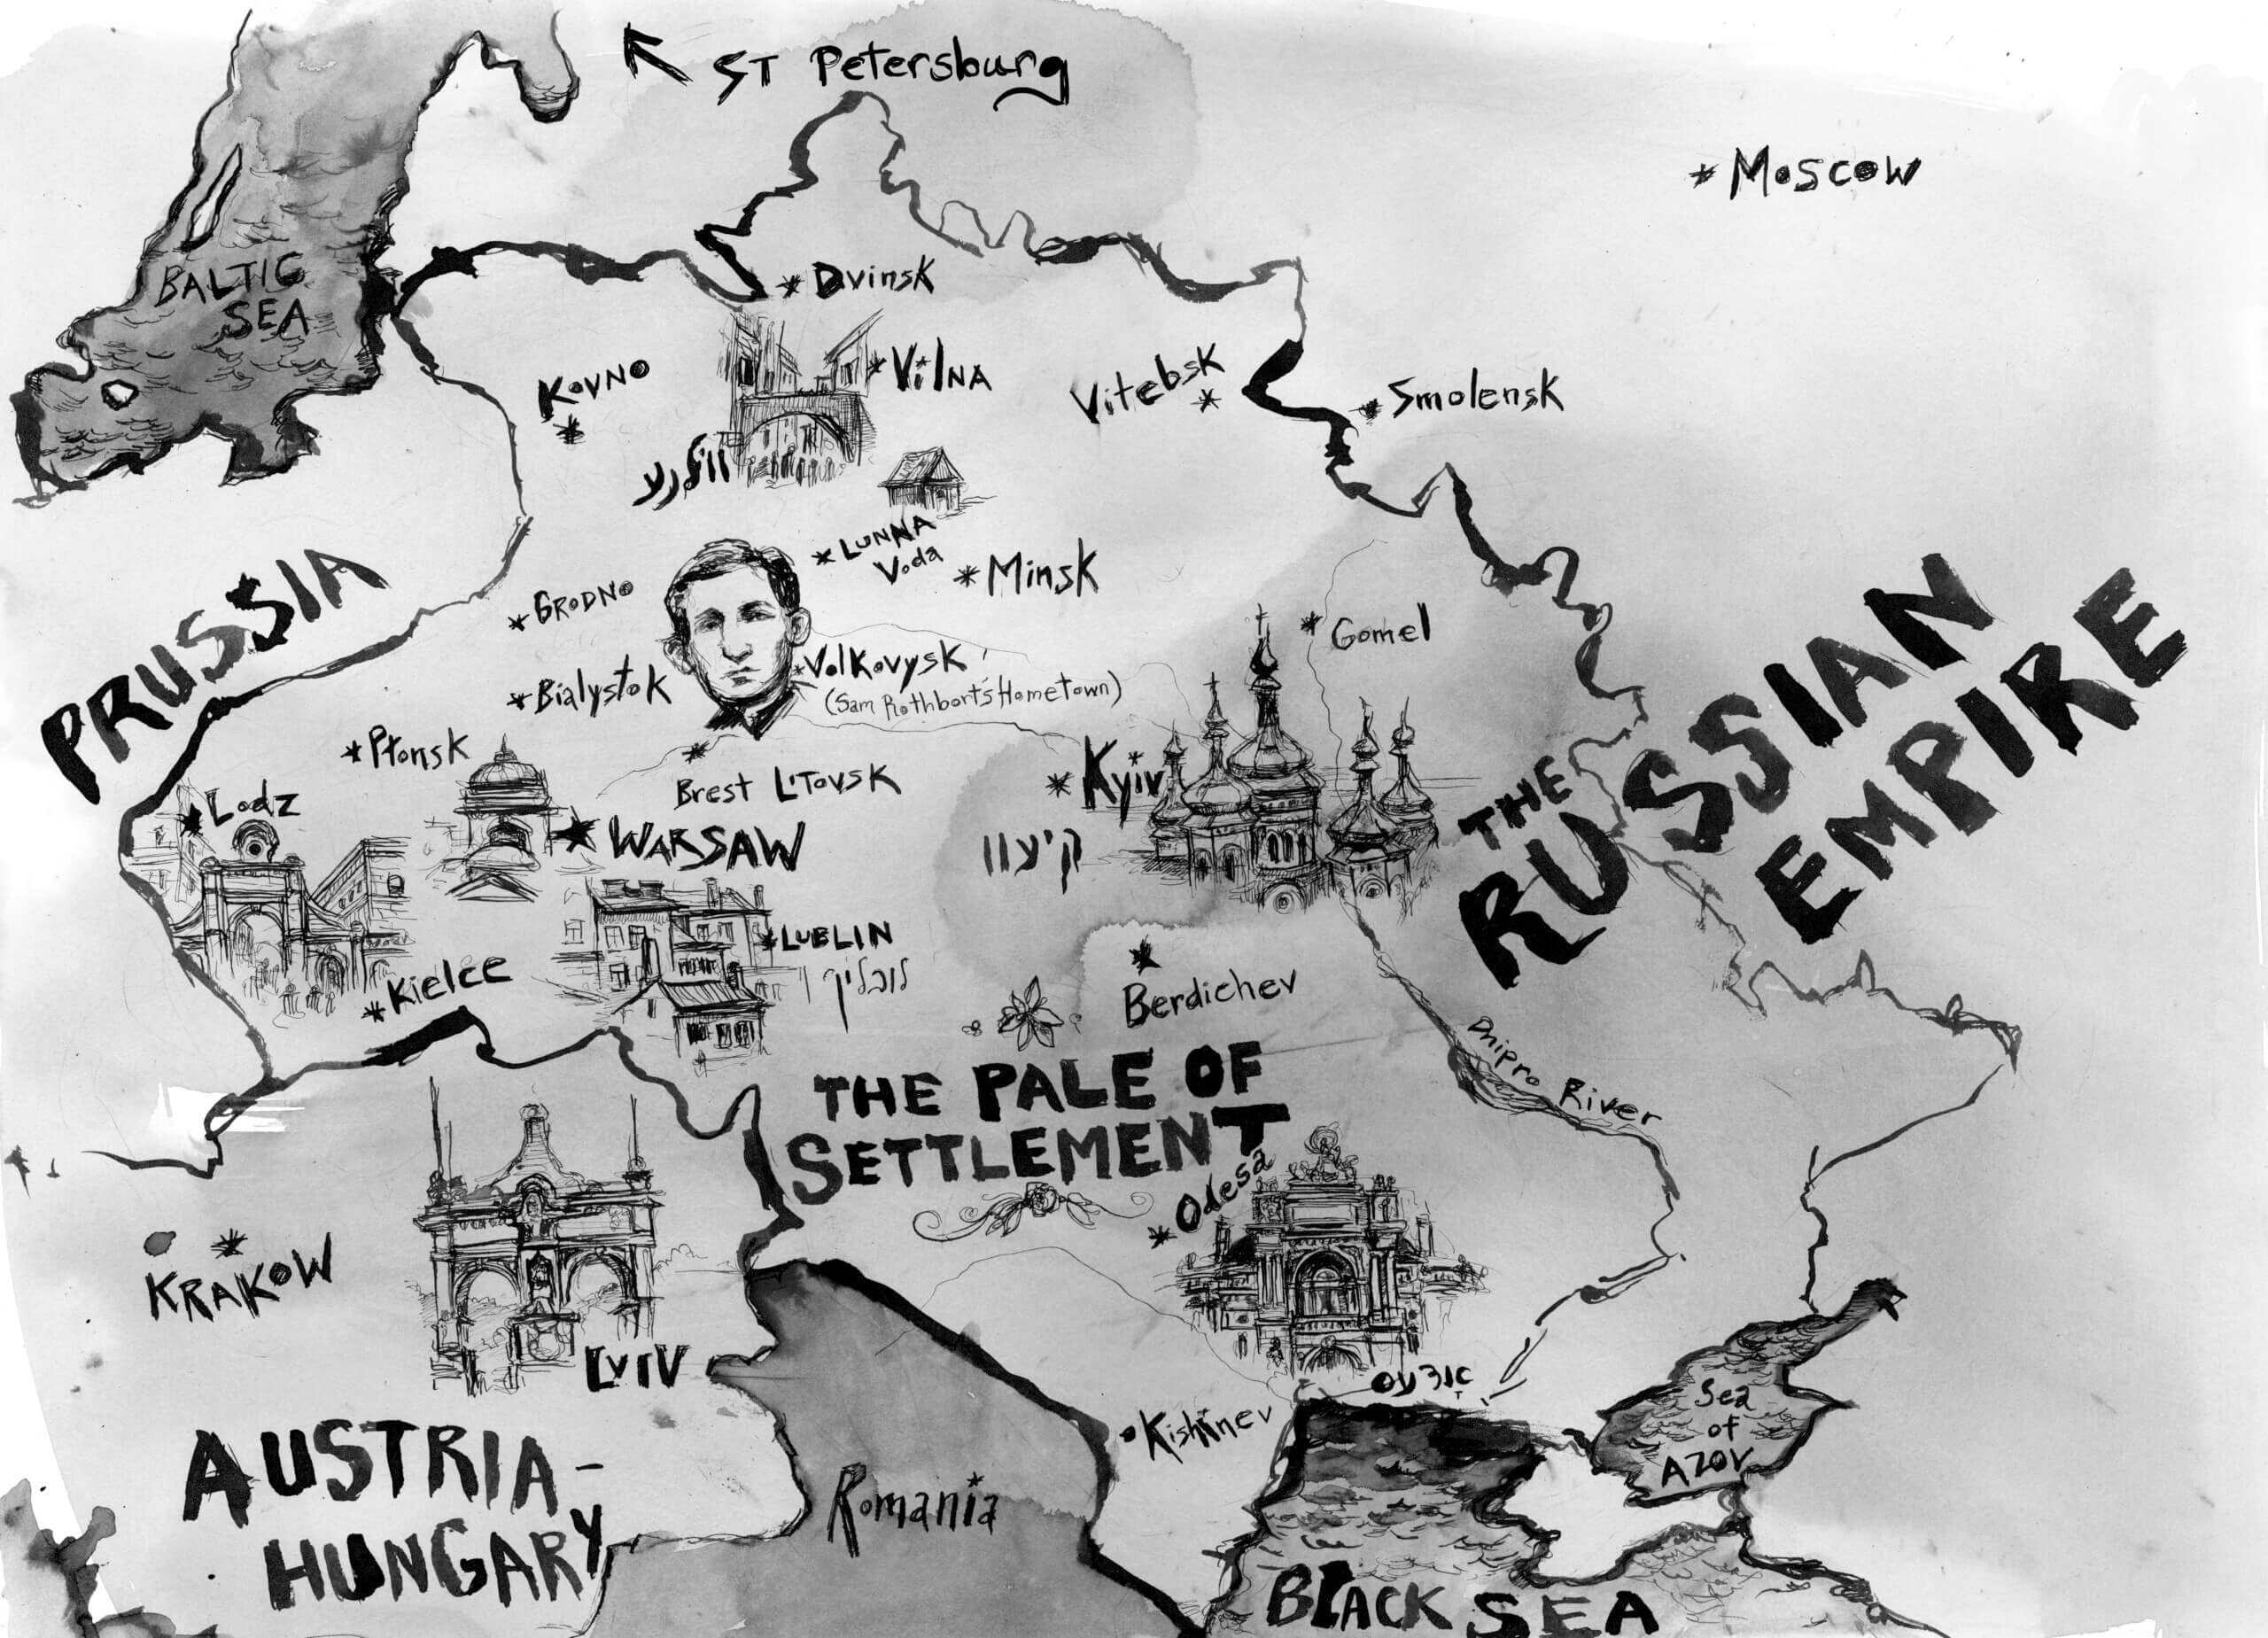 ST Petersburg
* Moscow
BALTIC
SEA
* Dvinsk
Kovno
* Vilna
ווילנע
Vitebsk
* Smolensk
PRUSSIA
* LUNNA
Voda
* Minsk
* GRODNO
* Gomel
* Bialystok
* Volkovysk
(Sam Rothbort's HomeTown)
* Płonsk
Brest LiTovsk
* Kyiv
קיעוו
* Lodz
* WARSAW
THE
RUSSIAN
EMPIRE
* LUBLIN
לובלין
* Kielce
Berdichev
Dnipro River
THE PALE OF
SETTLEMENT
* Odesa
אדעס
KRAKOW
LVIV
Kishinev
Sea
of
AZOV
AUSTRIA-
HUNGARY
Romania
BLACK SEA